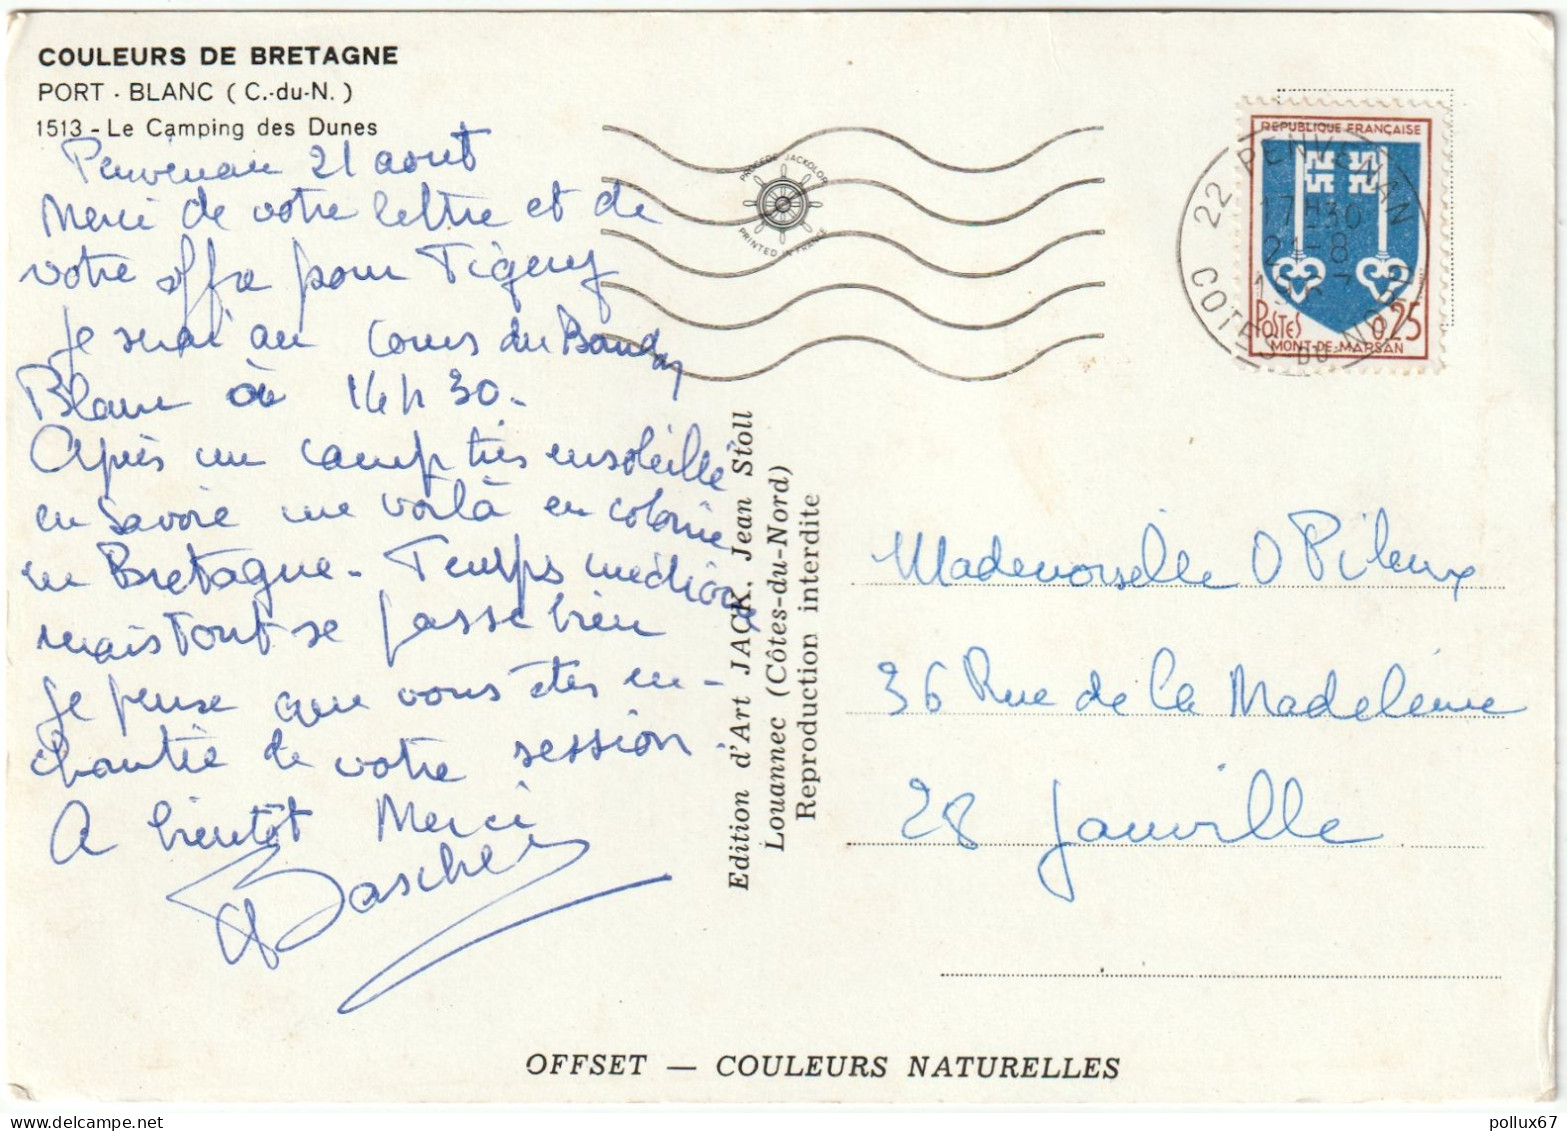 COULEURS DE BRETAGNE
PORT - BLANC ( C.-du-N. )
1513 - Le Camping des Dunes
Penvénan 21 aout
Merci de votre lettre et de
votre offre pour Tigery
Je serai au Cours du Bandy
Blanc à 14 h 30.
Après un camp très ensoleillé
en Savoie me voilà en colonie
en Bretagne. Temps médiocre
mais tout se passe bien
Je pense que vous êtes en-
chantée de votre session.
A bientôt Merci
Edition d'Art JACK. Jean Stoll
Louannec (Côtes-du-Nord)
Reproduction interdite
PROCÉDÉ JACKOLOR
PRINTED IN FRANCE
22 PENVENAN
17H30
21-8
COTES DU NORD
REPUBLIQUE FRANÇAISE
POSTES
0,25
MONT-DE-MARSAN
Mademoiselle O Pileux
36 Rue de la Madeleine
28 Janville
OFFSET — COULEURS NATURELLES
pollux67